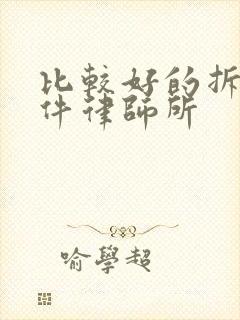 比較好的拆
件律師所
喻學超